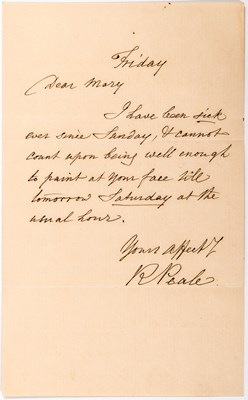 Friday
Dear Mary
I have been sick
ever since Sunday, & cannot
count upon being well enough
to paint at your face till
tomorrow Saturday at the
usual hour.
Yours affectly
R Peale.